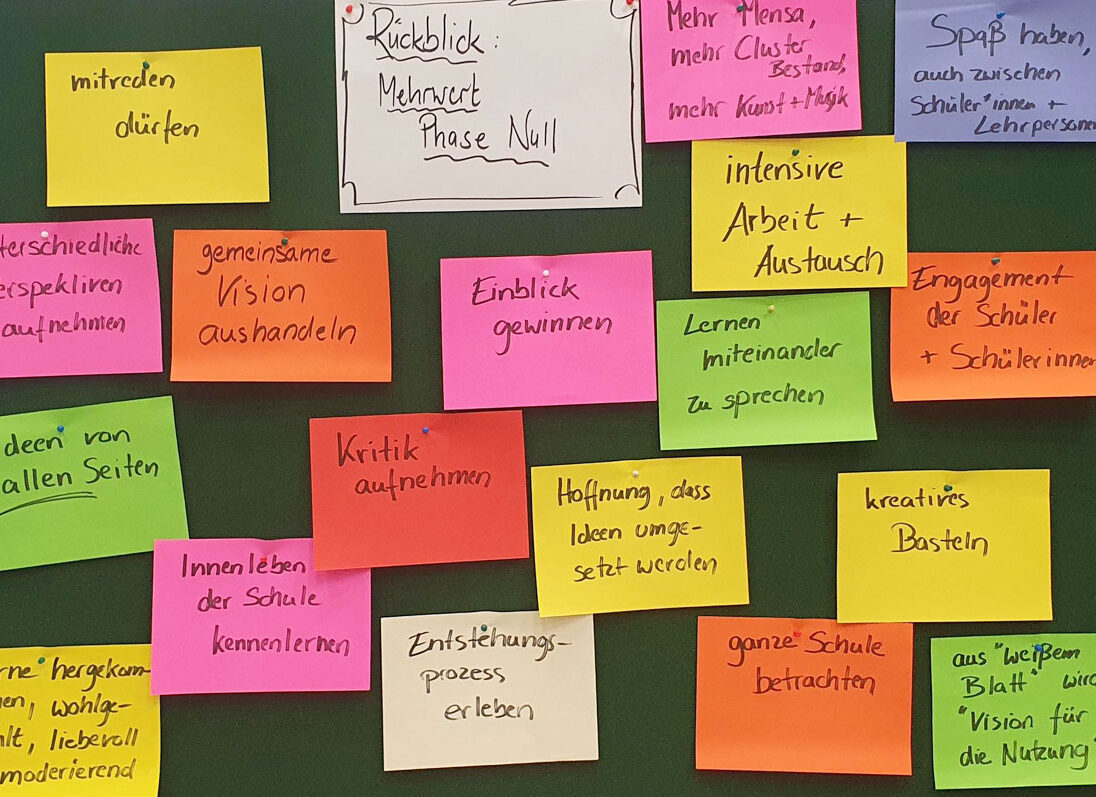 Rückblick:
Mehrwert
Phase Null
Mehr Mensa,
mehr Cluster
Bestand,
mehr Kunst + Musik
Spaß haben,
auch zwischen
Schüler*innen +
Lehrpersonen
mitreden
dürfen
intensive
Arbeit +
Austausch
terschiedliche
erspektiven
aufnehmen
gemeinsame
Vision
aushandeln
Einblick
gewinnen
Lernen
miteinander
zu sprechen
Engagement
der Schüler
+ Schülerinnen
deen von
allen Seiten
Kritik
aufnehmen
Hoffnung, dass
Ideen umge-
setzt werden
kreatives
Basteln
Innenleben
der Schule
kennenlernen
Entstehungs-
prozess
erleben
ganze Schule
betrachten
aus "weißem
Blatt" wird
"Vision für
die Nutzung"
rne hergekom-
en, wohlge-
lt, liebevoll
moderierend